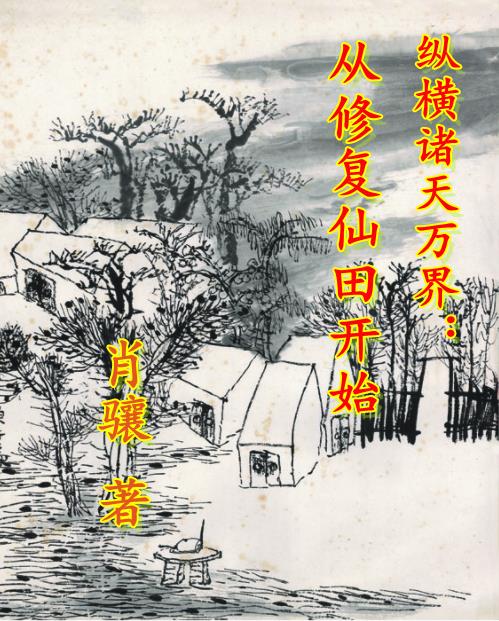 纵横诸天万界：
从修复仙田开始
肖骧 著